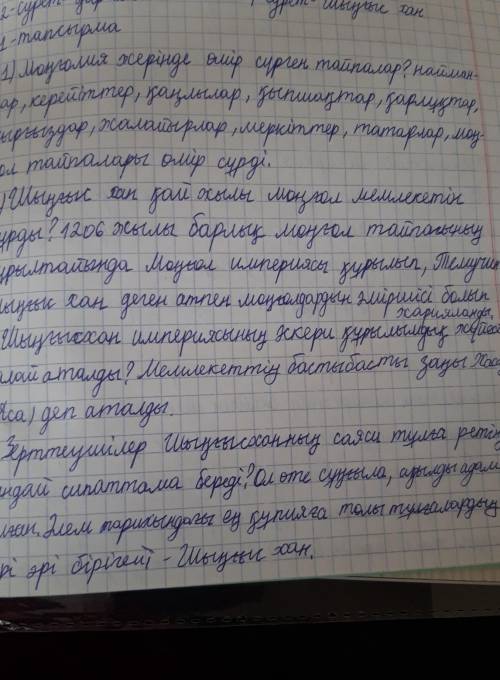 2-сурет- сурет- Шыңғыс хан
1-тапсырма
1) Моңғолия жерінде өмір сүрген тайпалар? найман-
ар, керейіттер, қаңлылар, қыпшақтар, қарлұқтар,
ырғыздар, жалайырлар, меркіттер, татарлар, моң-
ол тайпалары өмір сүрді.
) Шыңғыс хан қай жылы моңғол мемлекетін
ұрды? 1206 жылы барлық моңғол тайпасының
ұрылтайында Моңғол империясы құрылып, Темучин
ыңғыс хан деген атпен моңғолдардың әмірийсі болып
жарияланды.
Шыңғысхан империясының әскери құрылымдық
алай аталды? Мемлекеттің бастыбасты заңы Жаса
Яса) деп аталды.
Зерттеушілер Шыңғысханның саяси тұлға ретінд
ндай сипаттама береді? Ол өте сұңғыла, ақылды адам
лған. Әлем тарихындағы ең құпияға толы тұлғалардың
рі әрі бірегейі - Шыңғыс хан.